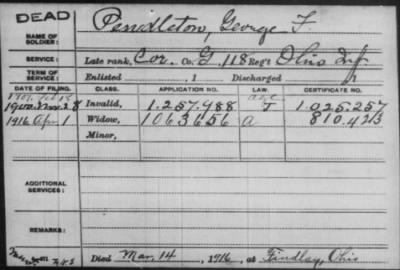 DEAD
NAME OF SOLDIER: Pendleton, George F.
SERVICE: Late rank, Cor. Co. G, 118 Reg't Ohio Inf
TERM OF SERVICE: Enlisted , 1 Discharged , 1
DATE OF FILING. CLASS. APPLICATION NO. LAW. CERTIFICATE NO.
1900 Nov. 28 Invalid, 1.257.988 J 1.025.257
1916 Apr 1 Widow, 1063656 a 810.423
Minor,
ADDITIONAL SERVICES:
REMARKS:
Died Mar. 14, 1916, at Findlay, Ohio